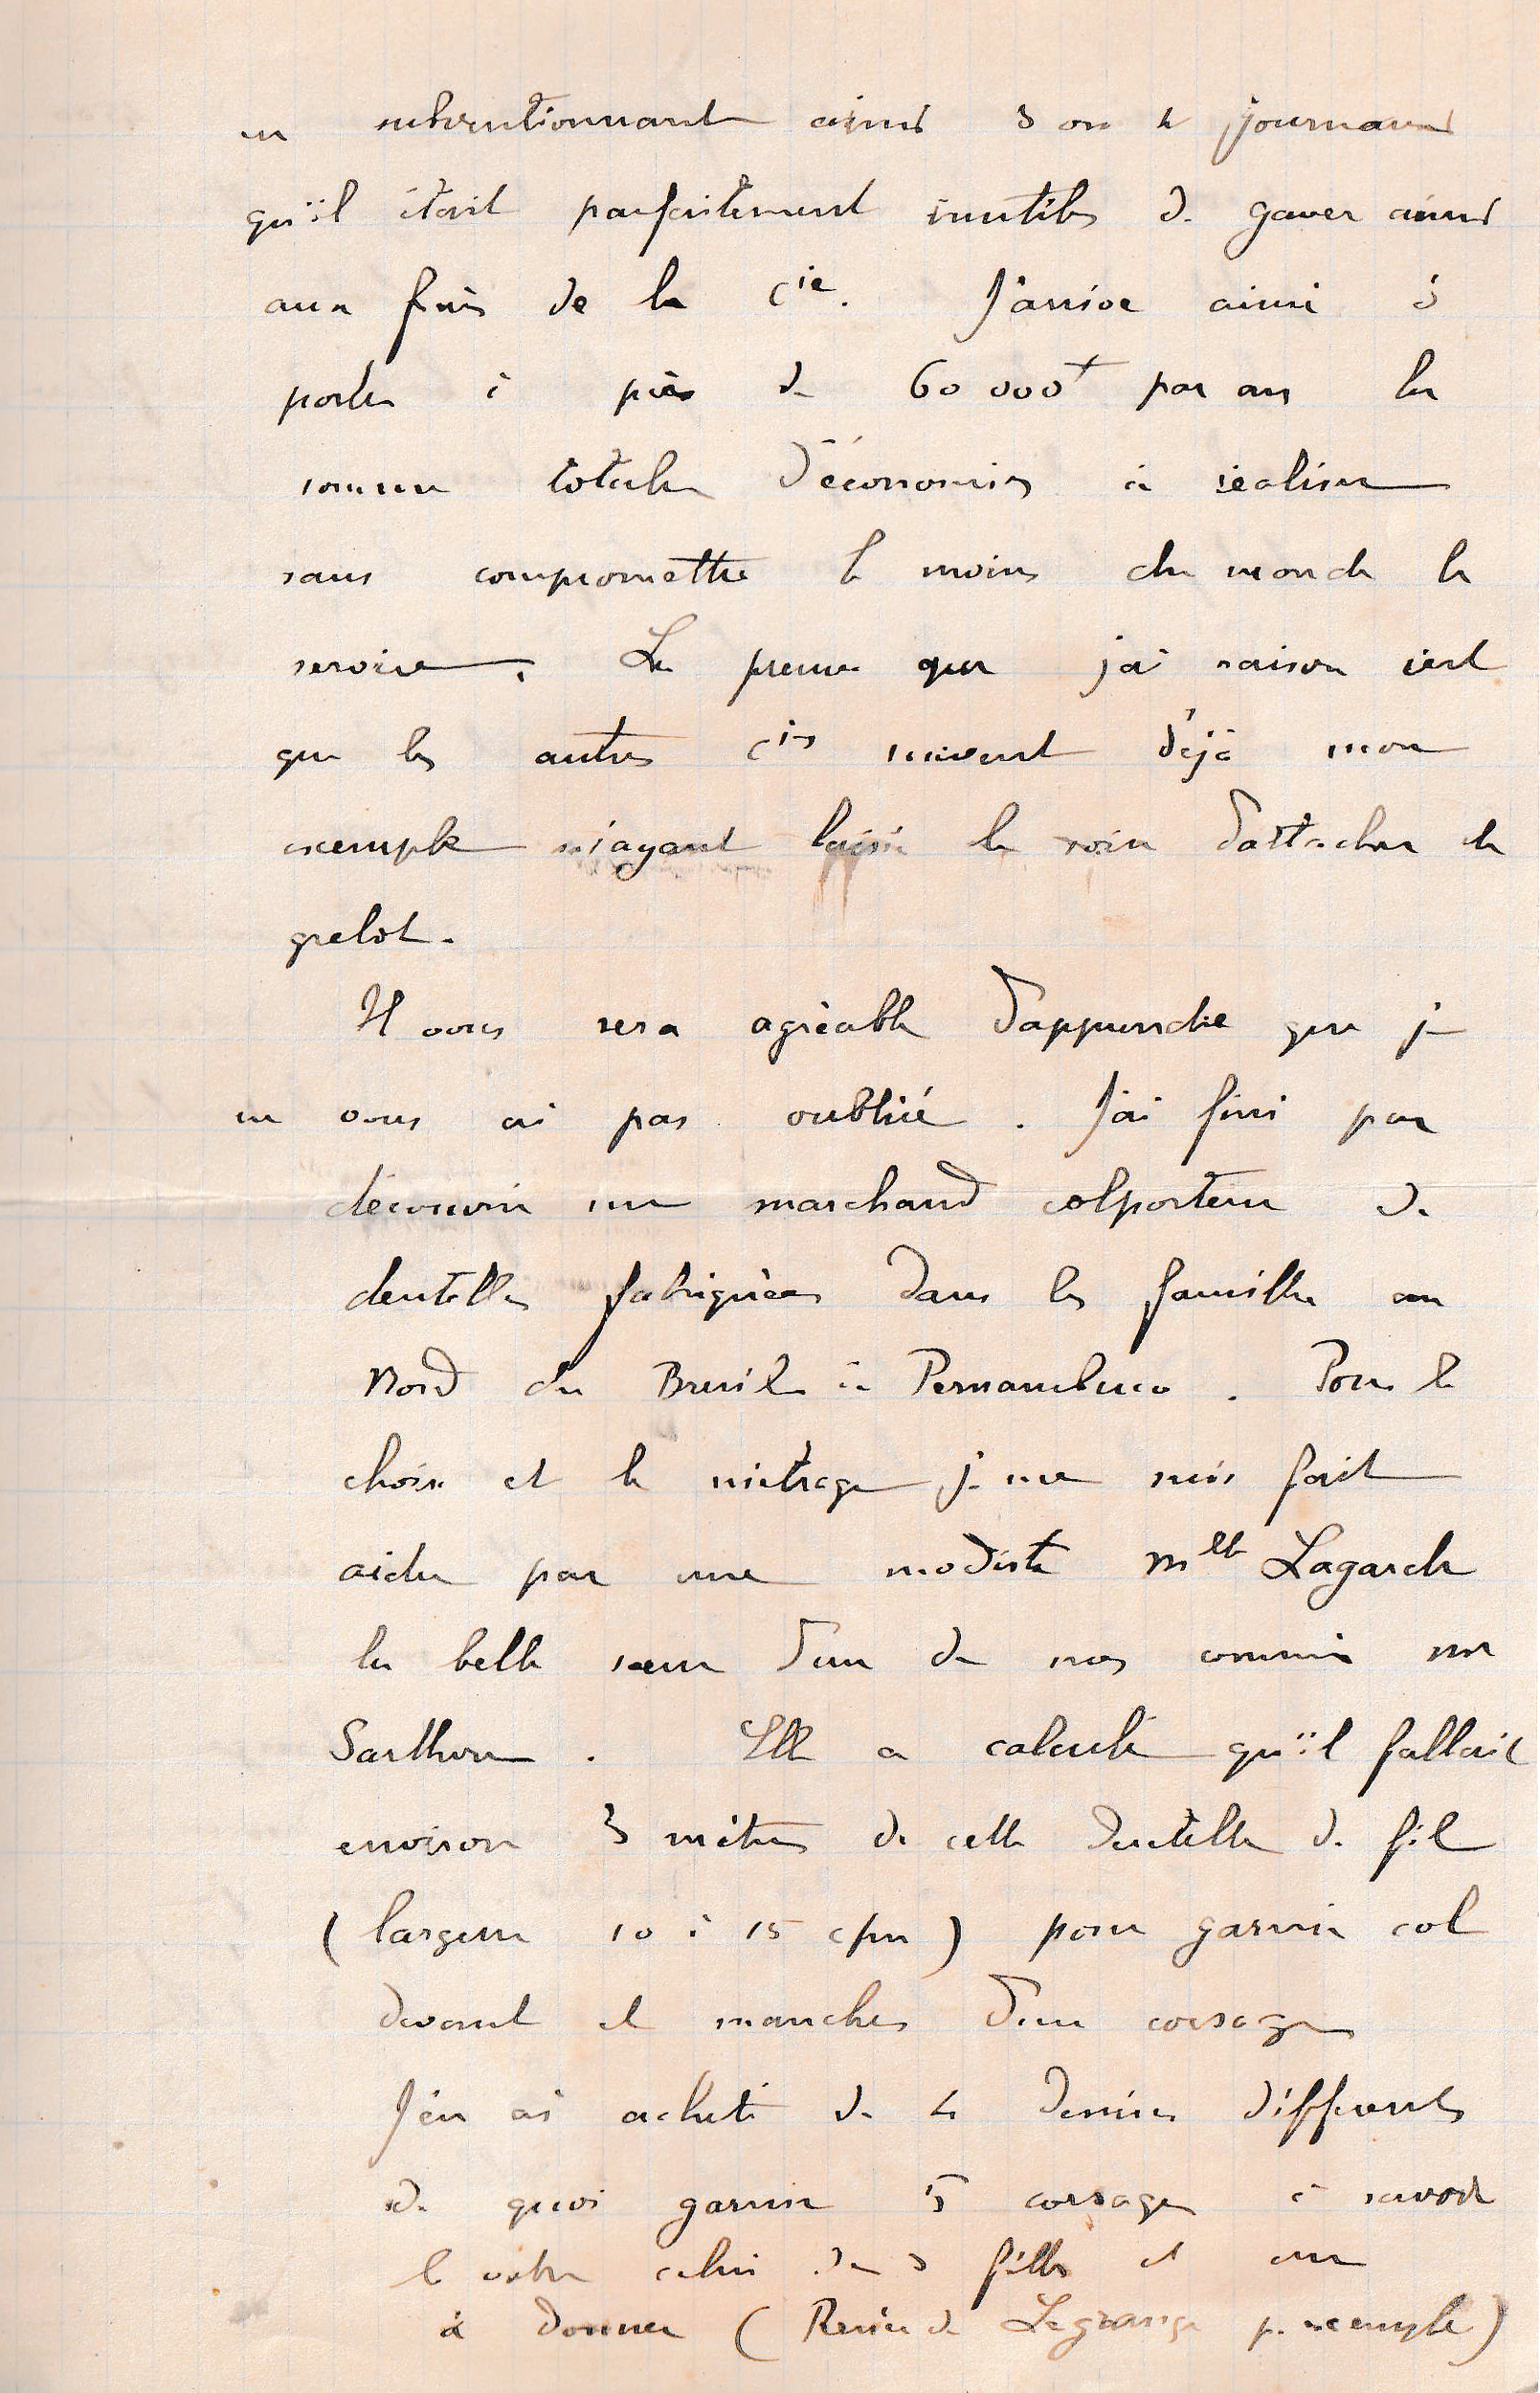 en subventionnant ainsi 3 ou 4 journaux
qu'il était parfaitement inutile de gaver ainsi
aux frais de la Cie. J'arrive ainsi à
porter à près de 60 000f par an la
somme totale d'économies à réaliser
sans compromettre le moins du monde le
service. La preuve que j'ai raison c'est
que les autres Cies suivent déjà mon
exemple m'ayant laissé le soin d'attacher le
grelot.
Il vous sera agréable d'apprendre que je
ne vous ai pas oublié. J'ai fini par
découvrir un marchand colporteur de
dentelles fabriquées dans les familles au
Nord du Brésil à Pernambuco. Pour le
choix et le métrage je me suis fait
aider par une modiste Mlle Lagarde
la belle sœur d'un de nos commis Mr
Sarthou. Elle a calculé qu'il fallait
environ 3 mètres de cette dentelle de fil
(largeur 10 à 15 c/m) pour garnir col
devant et manches d'un corsage
J'en ai acheté de 4 dessins différents
de quoi garnir 5 corsages à savoir
le votre celui des 3 filles et un
à donner (Renée de Lagrange p. exemple)